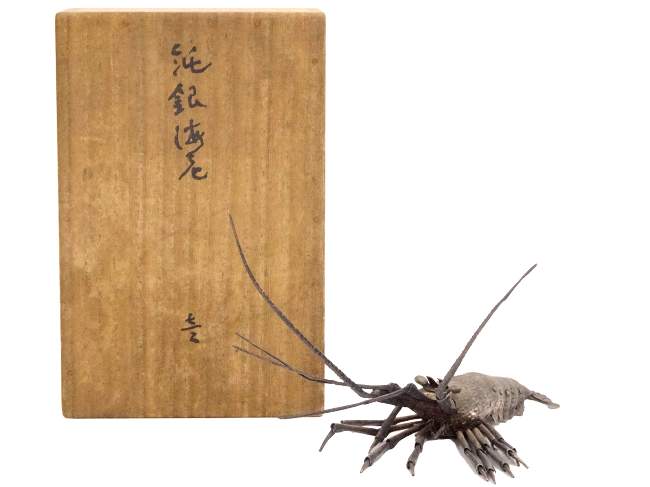 純銀海老